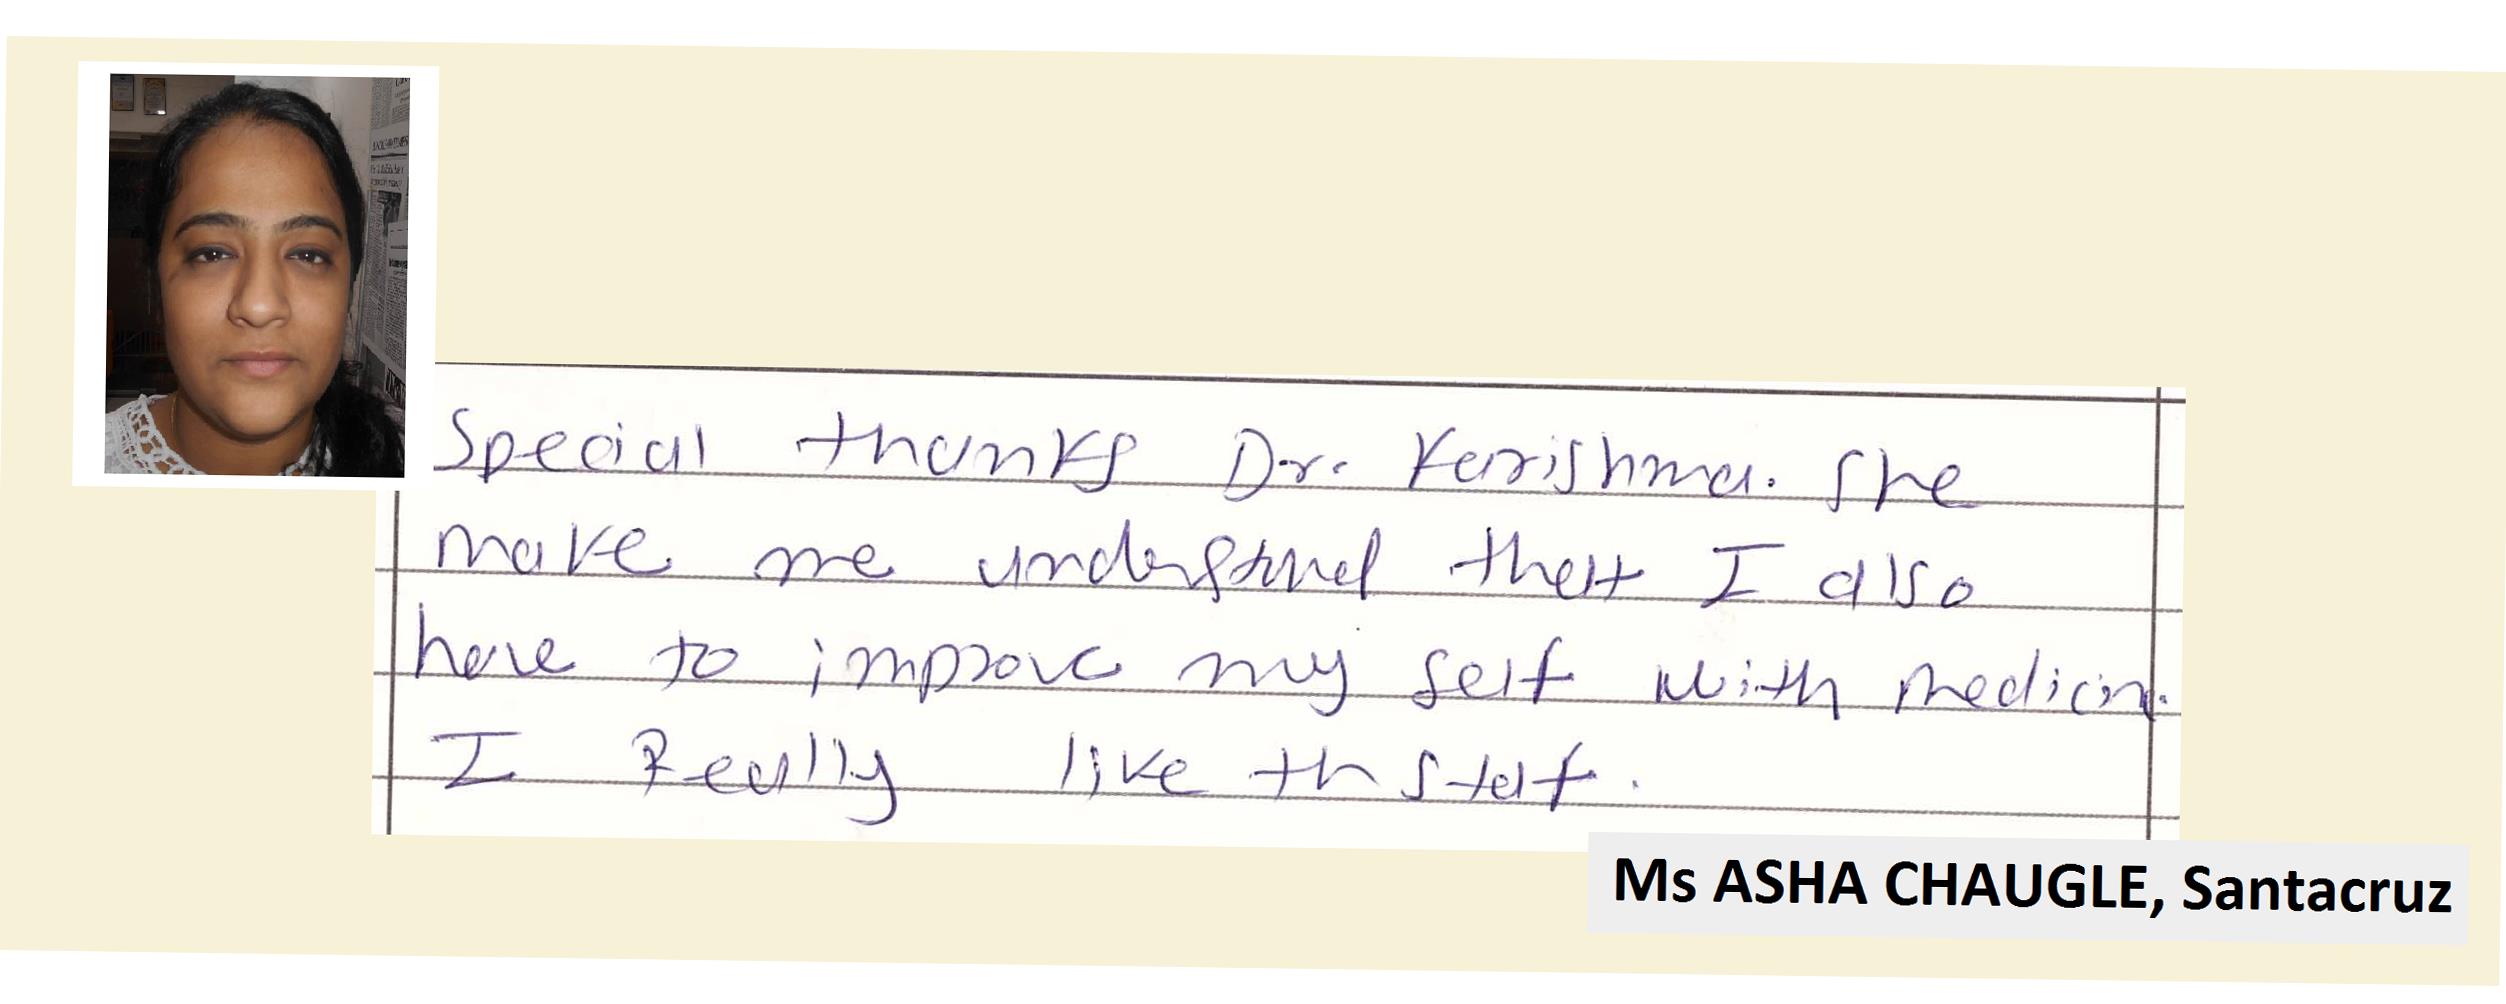 Special thanks Dr. Karishma. She
make me understand that I also
have to improve my self with medicin.
I Really like th staf.
Ms ASHA CHAUGLE, Santacruz